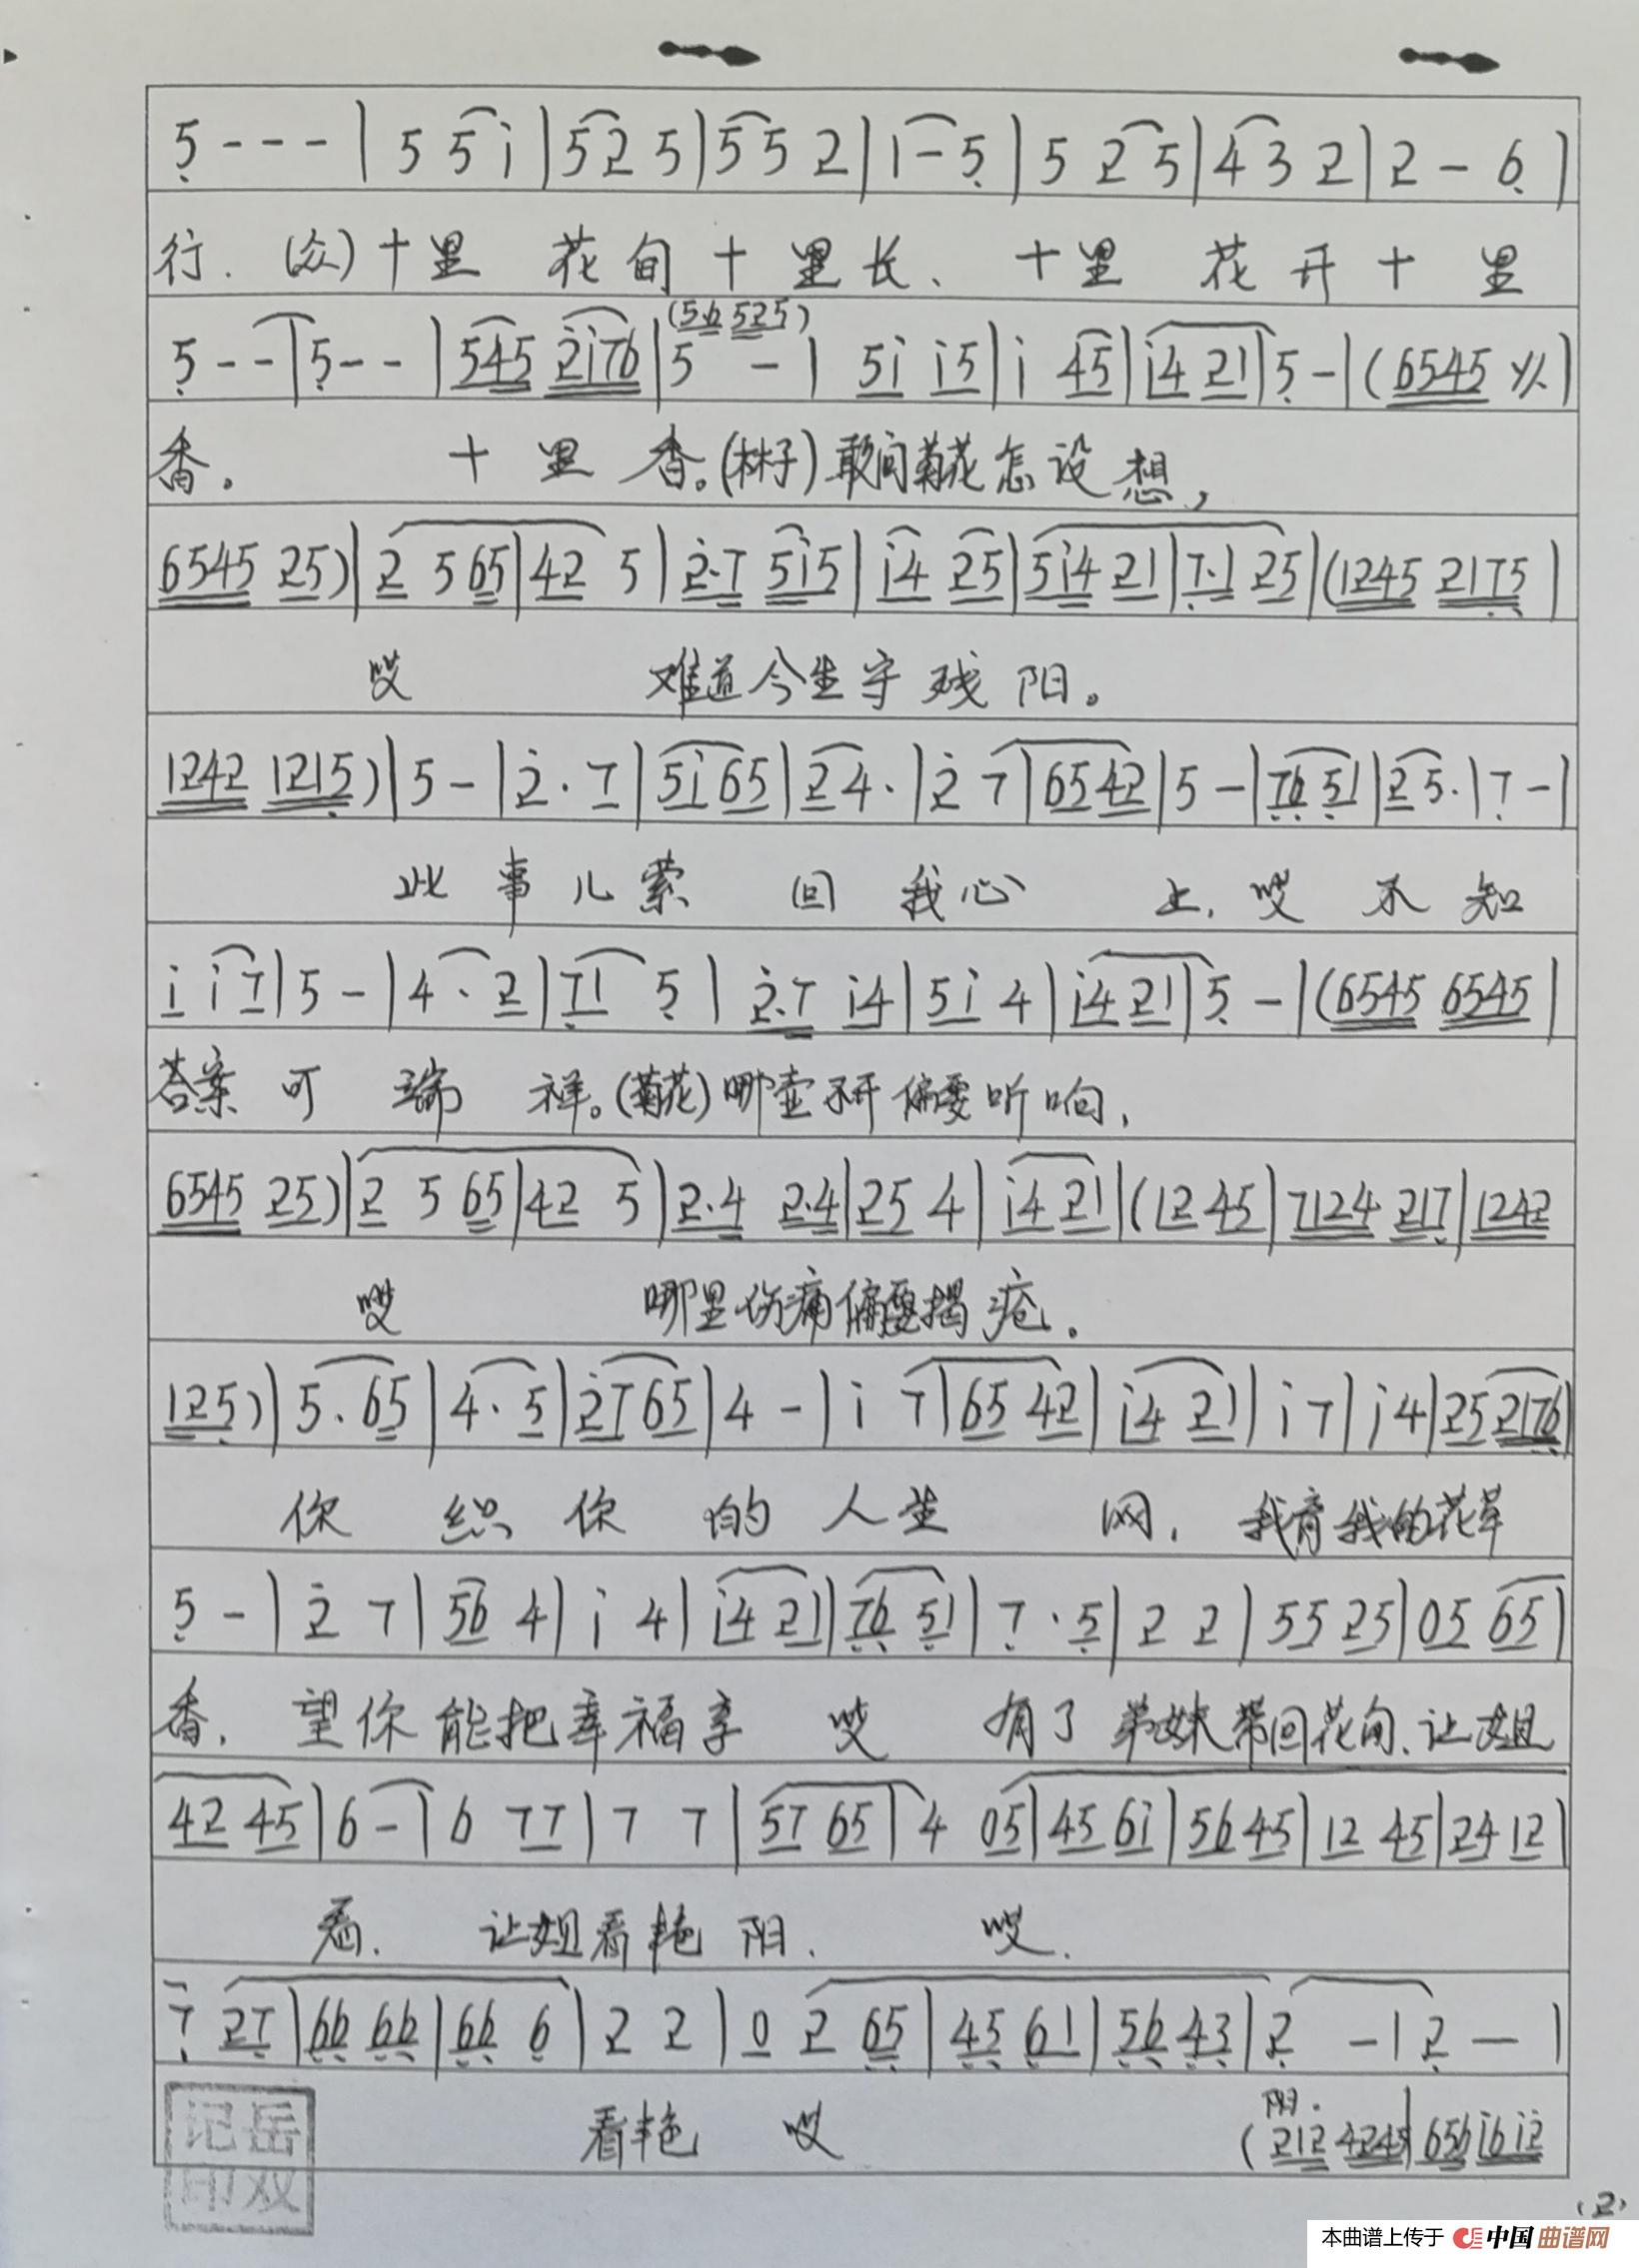 5 - - - | 5 5 i | 5 2 5 | 5 5 2 | 1 - 5 | 5 2 5 | 4 3 2 | 2 - 6 |
行. (众) 十里 花旬十里长、 十里 花开十里
(56 525)
5 - - | 5 - - | 545 2i76 | 5 - | 5i i5 | i 45 | i4 21 | 5 - | (6545 ⁒ |
香。 十里香。(林子) 敢问菊花怎设想,
6545 25) | 2 5 65 | 42 5 | 2·7 5i5 | i4 25 | 5i4 21 | 7·1 25 | (1245 2175 |
哎 难道今生守残阳。
1242 1215) | 5 - | 2 · 7 | 5i 65 | 2 4 · | 2 7 | 65 42 | 5 - | 76 51 | 2 5 · | 7 - |
此事儿萦回我心上, 哎不知
i i 7 | 5 - | 4 · 2 | 71 5 | 2·7 i4 | 5i 4 | i4 21 | 5 - | (6545 6545 |
答案可瑞祥。(菊花) 哪壶不开偏要听响,
6545 25) | 2 5 65 | 42 5 | 2·4 2·4 | 25 4 | i4 21 | (12 45 | 7124 217 | 1242
哎 哪里伤痛偏要揭疮.
125) | 5 · 65 | 4 · 5 | 27 65 | 4 - | i 7 | 65 42 | i4 21 | i 7 | i 4 | 25 2176 |
你织你的人生网, 我育我的花草
5 - | 2 7 | 56 4 | i 4 | i4 21 | 76 51 | 7 · 5 | 2 2 | 55 25 | 05 65 |
香, 望你能把幸福享 哎 有了弟妹带回花旬、让姐
42 45 | 6 - | 6 77 | 7 7 | 57 65 | 4 05 | 45 6i | 56 45 | 12 45 | 24 12 |
看. 让姐看艳阳. 哎.
7 27 | 66 66 | 66 6 | 2 2 | 0 2 65 | 45 61 | 56 43 | 2 - | 2 - |
看艳 哎 阳.
(212 4245 | 656 i6 i2
岳双记印
(2)
本曲谱上传于 中国曲谱网